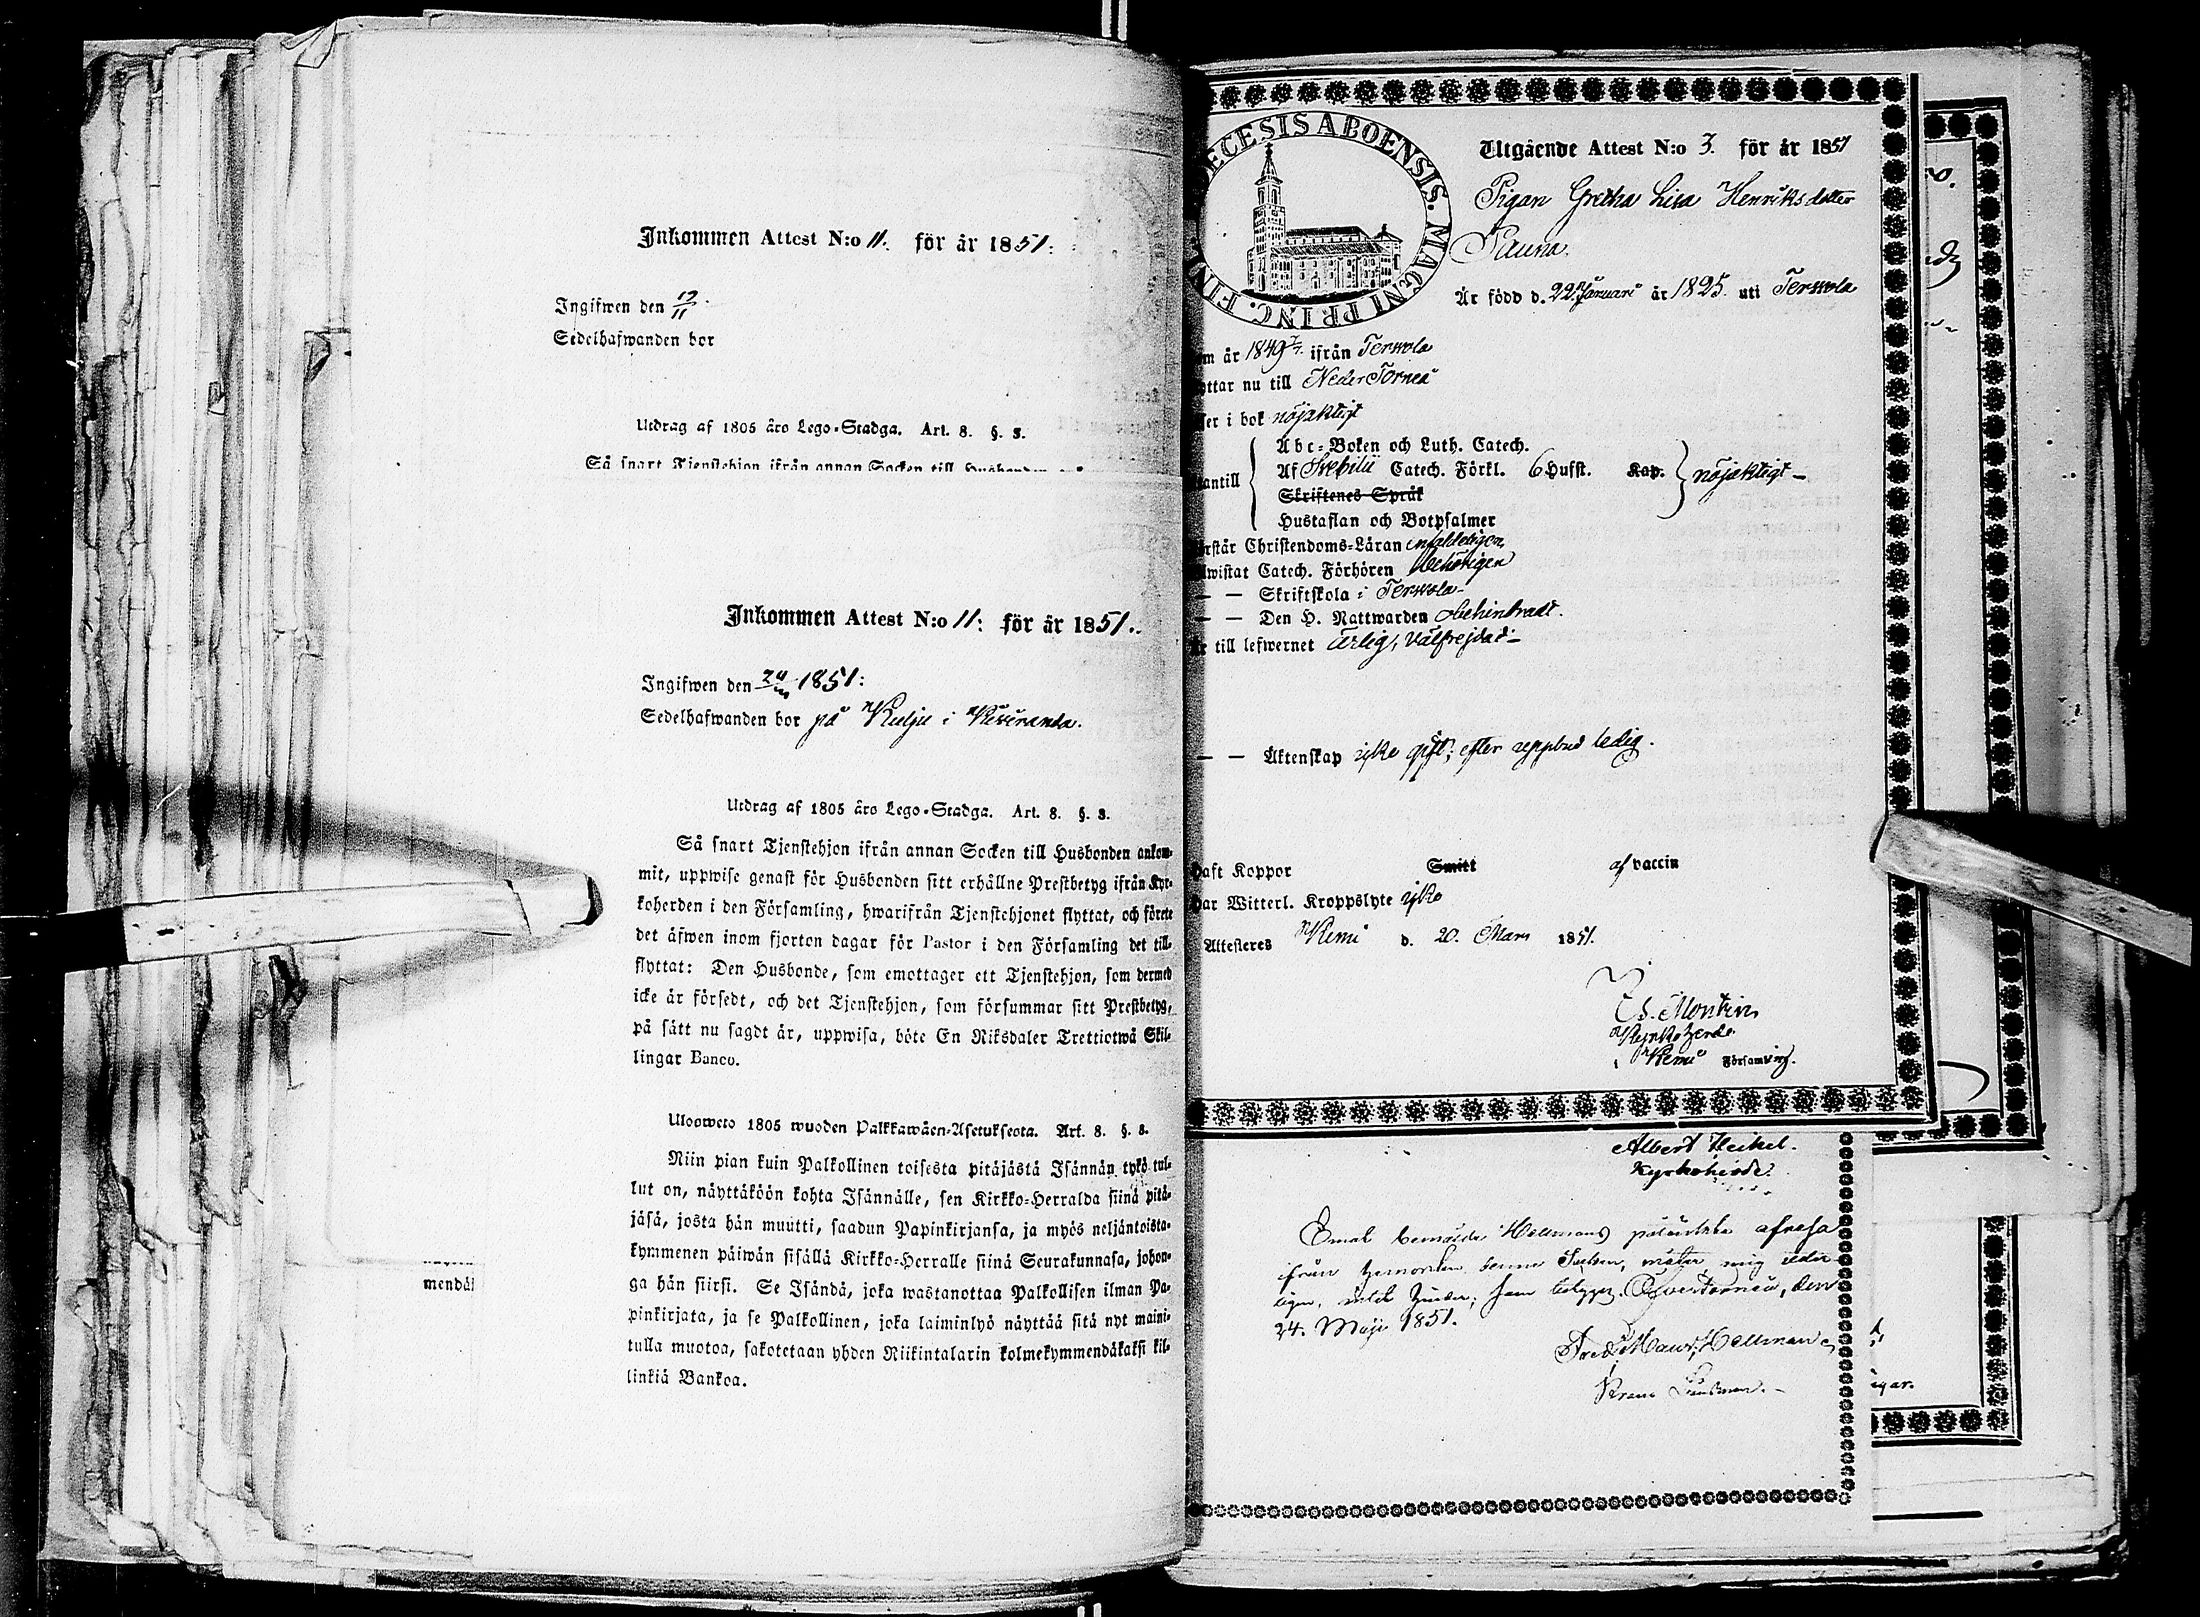 Inkommen Attest N:o 11. för år 1851:
Ingifwen den 19/11.
Sedelhafwanden bor
Utdrag af 1805 års Lego-Stadga. Art. 8. §. 3.
Så snart Tjenstehjon ifrån annan Socken till Husbonden
Inkommen Attest N:o 11: för år 1851.
Ingifwen den 1851:
Sedelhafwanden bor på Kulju i
Utdrag af 1805 års Lego-Stadga. Art. 8. §. 3.
Så snart Tjenstehjon ifrån annan Socken till Husbonden ankom-
mit, uppwise genast för Husbonden sitt erhållne Prestbetyg ifrån Kyr-
koherden i den Församling, hwarifrån Tjenstehjonet flyttat, och förete
det äfwen inom fjorton dagar för Pastor i den Församling det till-
flyttat: Den Husbonde, som emottager ett Tjenstehjon, som dermed
icke är försedt, och det Tjenstehjon, som försummar sitt Prestbetyg,
på sätt nu sagdt är, uppwisa, böte En Riksdaler Trettiotwå Skil-
lingar Banco.
Ulosweto 1805 wuoden Palkkawäen-Asetuksesta. Art. 8. §. 3.
Niin pian kuin Palkollinen toisesta pitäjästä Isännän tykö tul-
lut on, näyttäköön kohta Isännälle, sen Kirkko-Herralda siinä pitä-
jäsä, josta hän muutti, saadun Papinkirjansa, ja myös neljäntoista-
kymmenen päiwän sisällä Kirkko-Herralle siinä Seurakunnasa, johon-
ga hän siirsi. Se Isändä, joka wastanottaa Palkollisen ilman Pa-
pinkirjata, ja se Palkollinen, joka laiminlyö näyttää sitä nyt maini-
tulla muotoa, sakotetaan yhden Riikintalarin kolmekymmendäkaksi kil-
linkiä Bankoa.
mendä
ECESIS ABOENSIS. MAGNI PRINC. FIN
Utgående Attest N:o 3. för år 1851
Pigan Gretha Lisa Henriksdotter
Sauna.
Är född d. 22 Januari år 1825. uti Terwola
m år 1849 7/7. ifrån Terwola
ttar nu till Neder Torneå
er i bok nöjaktigt
antill
Abc-Boken och Luth. Catech.
Af Svebilii Catech. Förkl. 6 Hufst. Kap. nöjaktigt –
Skriftenes Språk
Hustaflan och Botpsalmer
rstår Christendoms-Läran enfaldeligen
wistat Catech. Förhören behörigen
— — Skriftskola i Terwola –
— — Den H. Nattwarden obehindradt.
är till lefwernet ärlig, välfrejdad –
— — Äktenskap icke gift; efter uppbud ledig.
haft Koppor Smitt af vaccin
har Witterl. Kroppslyte icke
Attesteres Kemi d. 20. Mars 1851.
Montin
Kyrkoherde
i Kemi Församling.
Albert Heikel.
Kyrkoherde.
Emot bemälde Hellmans afresa
ifrån denna Socken, möter mig
24. Maji 1851.
Hellman
Krono Länsman. –
gar.